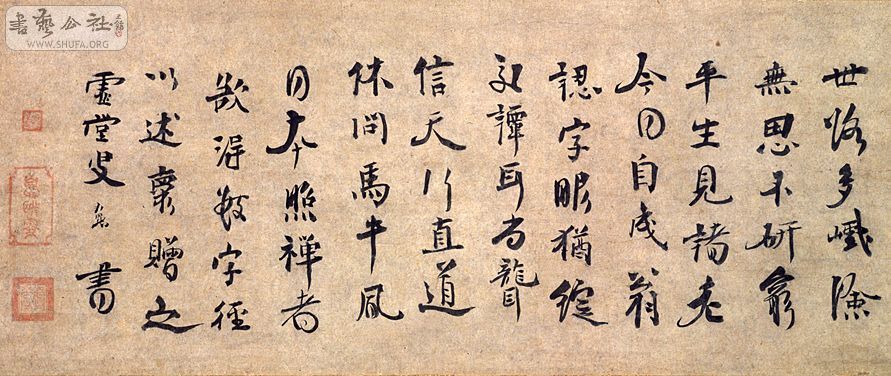 世路多巇嶮
無思不研窮
平生見諸老
今日自成翁
認字眼猶綻
交譚耳尚聾
信天行直道
休問馬牛風
日本照禪者
欲得數字徑
以述懷贈之
虛堂叟智愚書
書藝公社
WWW.SHUFA.ORG